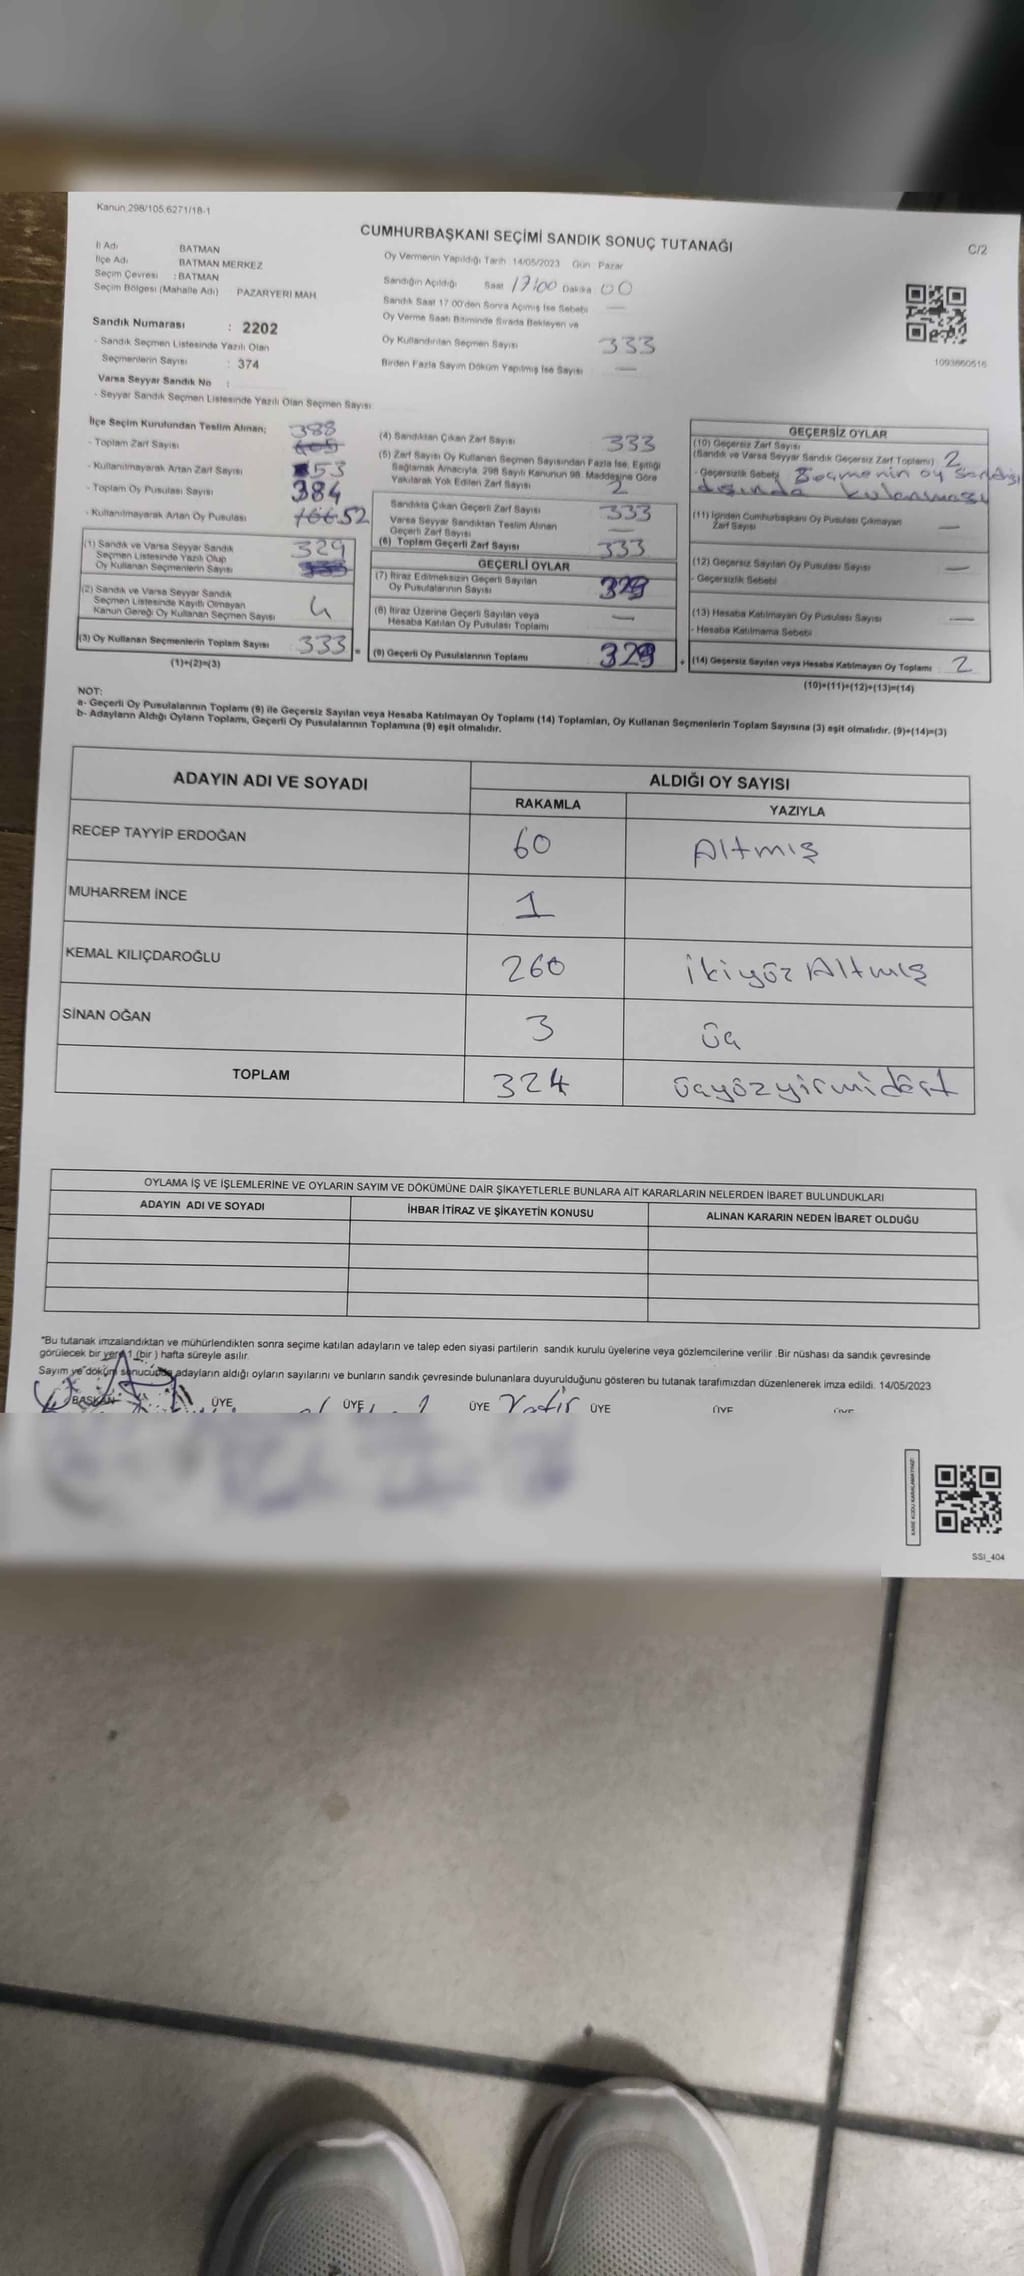 Kanun:298/105,6271/18-1
CUMHURBAŞKANI SEÇİMİ SANDIK SONUÇ TUTANAĞI
C/2
İl Adı BATMAN
İlçe Adı BATMAN MERKEZ
Seçim Çevresi : BATMAN
Seçim Bölgesi (Mahalle Adı) PAZARYERİ MAH
Sandık Numarası : 2202
- Sandık Seçmen Listesinde Yazılı Olan
Seçmenlerin Sayısı : 374
Varsa Seyyar Sandık No :
- Seyyar Sandık Seçmen Listesinde Yazılı Olan Seçmen Sayısı
Oy Vermenin Yapıldığı Tarih 14/05/2023 Gün Pazar
Sandığın Açıldığı Saat 17:00 Dakika 00
Sandık Saat 17 00'den Sonra Açımış İse Sebebi —
Oy Verme Saati Bitiminde Sırada Bekleyen ve
Oy Kullandırılan Seçmen Sayısı 333
Birden Fazla Sayım Döküm Yapılmış İse Sayısı —
1093660516
İlçe Seçim Kurulundan Teslim Alınan; 388
- Toplam Zarf Sayısı
- Kullanılmayarak Artan Zarf Sayısı 53
- Toplam Oy Pusulası Sayısı 384
- Kullanılmayarak Artan Oy Pusulası 52
(1) Sandık ve Varsa Seyyar Sandık 329
Seçmen Listesinde Yazılı Olup
Oy Kullanan Seçmenlerin Sayısı
(2) Sandık ve Varsa Seyyar Sandık
Seçmen Listesinde Kayıtlı Olmayan
Kanun Gereği Oy Kullanan Seçmen Sayısı 4
(3) Oy Kullanan Seçmenlerin Toplam Sayısı 333 =
(1)+(2)=(3)
(4) Sandıktan Çıkan Zarf Sayısı 333
(5) Zarf Sayısı Oy Kullanan Seçmen Sayısından Fazla İse, Eşitliği
Sağlamak Amacıyla, 298 Sayılı Kanunun 98. Maddesine Göre
Yakılarak Yok Edilen Zarf Sayısı 2
Sandıkta Çıkan Geçerli Zarf Sayısı 333
Varsa Seyyar Sandıktan Teslim Alınan
Geçerli Zarf Sayısı —
(6) Toplam Geçerli Zarf Sayısı 333
GEÇERLİ OYLAR
(7) İtiraz Edilmeksizin Geçerli Sayılan
Oy Pusulalarının Sayısı 329
(8) İtiraz Üzerine Geçerli Sayılan veya
Hesaba Katılan Oy Pusulası Toplamı —
(9) Geçerli Oy Pusulalarının Toplamı 329 +
GEÇERSİZ OYLAR
(10) Geçersiz Zarf Sayısı
(Sandık ve Varsa Seyyar Sandık Geçersiz Zarf Toplamı) 2
- Geçersizlik Sebebi Seçmenin oy sandığı
dışında kulanması
(11) İçinden Cumhurbaşkanı Oy Pusulası Çıkmayan
Zarf Sayısı —
(12) Geçersiz Sayılan Oy Pusulası Sayısı —
- Geçersizlik Sebebi
(13) Hesaba Katılmayan Oy Pusulası Sayısı —
- Hesaba Katılmama Sebebi
(14) Geçersiz Sayılan veya Hesaba Katılmayan Oy Toplamı 2
(10)+(11)+(12)+(13)=(14)
NOT:
a- Geçerli Oy Pusulalarının Toplamı (9) ile Geçersiz Sayılan veya Hesaba Katılmayan Oy Toplamı (14) Toplamları, Oy Kullanan Seçmenlerin Toplam Sayısına (3) eşit olmalıdır. (9)+(14)=(3)
b- Adayların Aldığı Oyların Toplamı, Geçerli Oy Pusulalarının Toplamına (9) eşit olmalıdır.
ADAYIN ADI VE SOYADI ALDIĞI OY SAYISI
RAKAMLA YAZIYLA
RECEP TAYYİP ERDOĞAN 60 Altmış
MUHARREM İNCE 1
KEMAL KILIÇDAROĞLU 260 ikiyüz Altmış
SİNAN OĞAN 3 üç
TOPLAM 324 üçyüzyirmidört
OYLAMA İŞ VE İŞLEMLERİNE VE OYLARIN SAYIM VE DÖKÜMÜNE DAİR ŞİKAYETLERLE BUNLARA AİT KARARLARIN NELERDEN İBARET BULUNDUKLARI
ADAYIN ADI VE SOYADI İHBAR İTİRAZ VE ŞİKAYETİN KONUSU ALINAN KARARIN NEDEN İBARET OLDUĞU
*Bu tutanak imzalandıktan ve mühürlendikten sonra seçime katılan adayların ve talep eden siyasi partilerin sandık kurulu üyelerine veya gözlemcilerine verilir .Bir nüshası da sandık çevresinde
görülecek bir yere 1 (bir ) hafta süreyle asılır.
Sayım ve döküm sonucunda adayların aldığı oyların sayılarını ve bunların sandık çevresinde bulunanlara duyurulduğunu gösteren bu tutanak tarafımızdan düzenlenerek imza edildi. 14/05/2023
BAŞKAN ÜYE ÜYE ÜYE Kadir ÜYE ÜYE ÜYE
KARE KODU KARALAMAYINIZ!
SSI_404